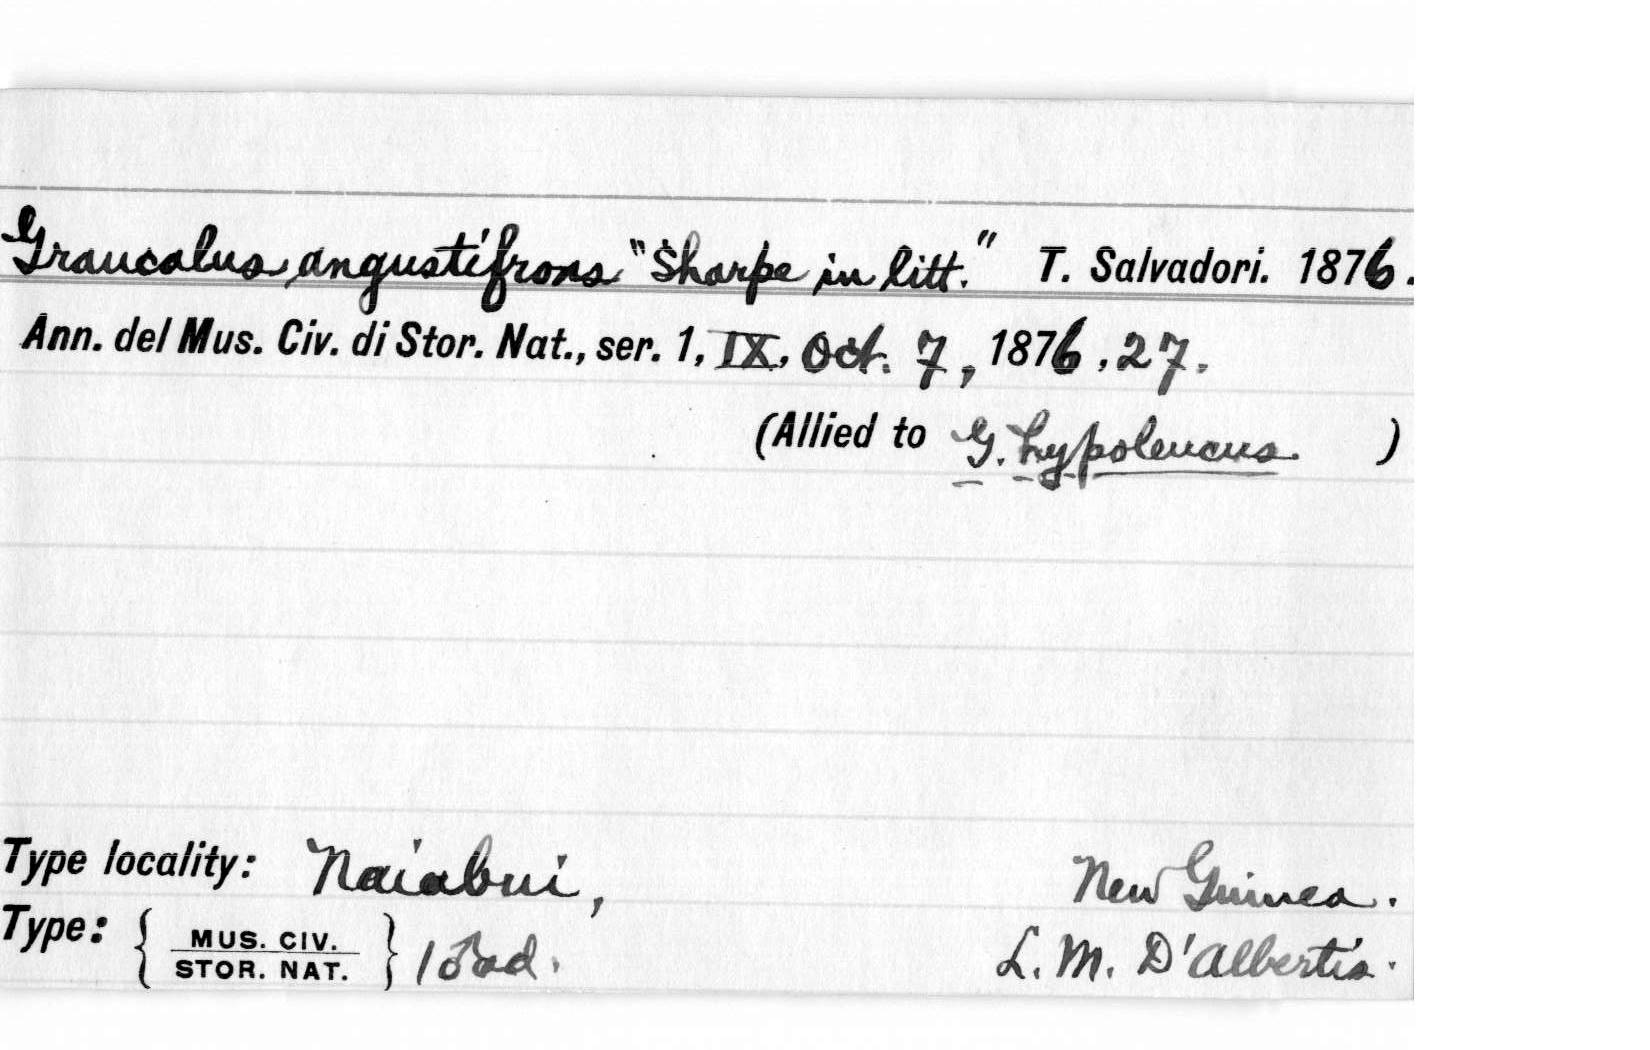 Graucalus angustifrons "Sharpe in litt." T. Salvadori. 1876.
Ann. del Mus. Civ. di Stor. Nat., ser. 1, IX, Oct. 7, 1876, 27.
(Allied to G. hypoleucus. )
Type locality: Naiabui, New Guinea.
Type: { MUS. CIV. STOR. NAT. } 1 ♂ ad. L. M. D'Albertis.